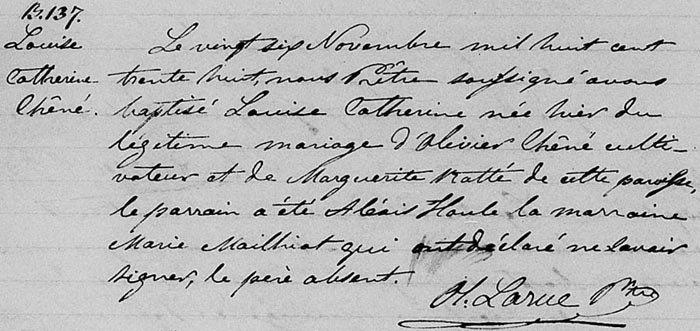 B.137.
Louise
Catherine
Chêné.
Le vingt six Novembre mil huit cent
trente huit, nous Prêtre soussigné avons
baptisé Louise Catherine née hier du
légitime mariage d'Olivier Chêné culti-
vateur et de Marguerite Ratté de cette paroisse,
le parrain a été Aléxis Houle la marraine
Marie Mailhiot qui ont déclaré ne savoir
signer, le père absent.
H. Larue Ptre